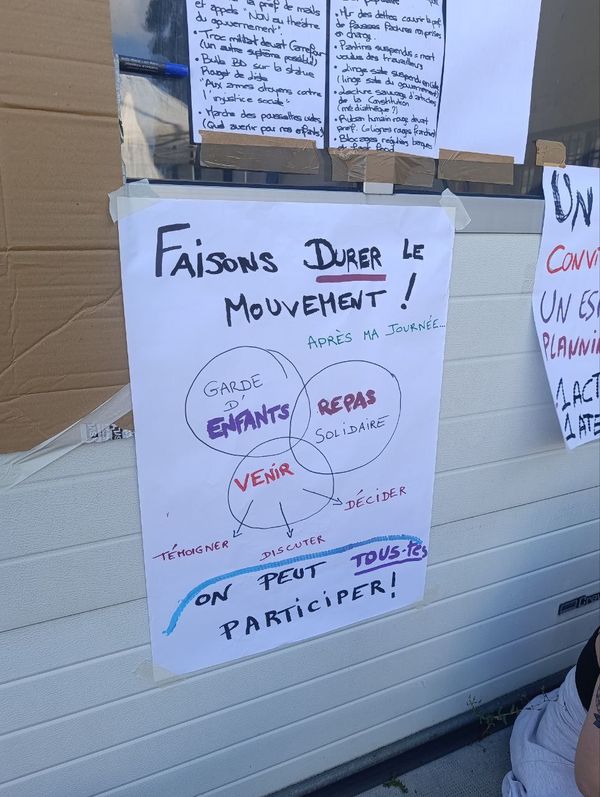 la pref de mails
et appels "NON au théâtre
du gouvernement".
• Troc militant devant Carrefour
(un autre système possible)
• Bulle BD sur la statue
Rouget de Lisle
"Aux armes citoyens contre
l'injustice sociale"
• Marche des poussettes vides
(Quel avenir pour nos enfants)
• Mur des dettes
de fausses factures
en charg.
• Pantins suspendus = mort
des travailleurs
• Linge sale suspendu
(linge sale du gouvernement)
• Lecture sauvage d'articles
de la Constitution
(médiathèque ?)
• Ruban humain rouge devant
pref.
• Blocages réguliers banques
et fast food
FAISONS DURER LE
MOUVEMENT !
APRÈS MA JOURNÉE...
GARDE
D'
ENFANTS
REPAS
SOLIDAIRE
VENIR
DÉCIDER
TÉMOIGNER
DISCUTER
ON PEUT TOUS-tes
PARTICIPER !
UN
CONVI
UN ES
PLANNI
1 ACT
1 ATE